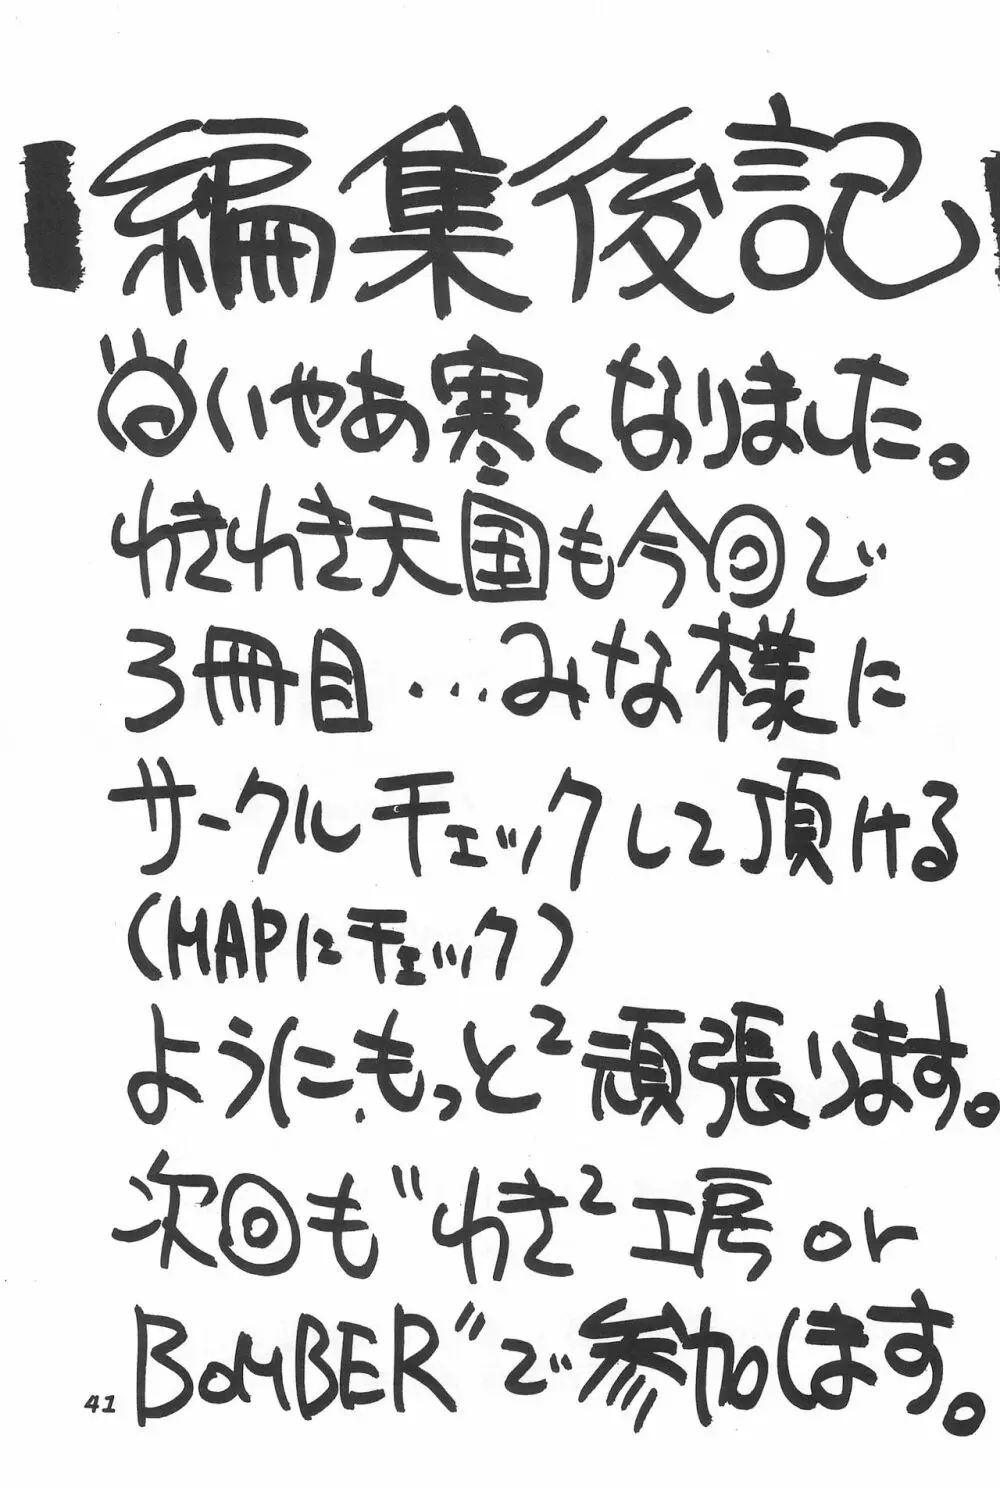 編集後記
いやあ寒くなりました。
わきわき天国も今回で
3冊目...みな様に
サークルチェックして頂ける
(MAPにチェック)
ように、もっと²頑張ります。
次回も"わき²工房or
BomBER"で参加します。
41